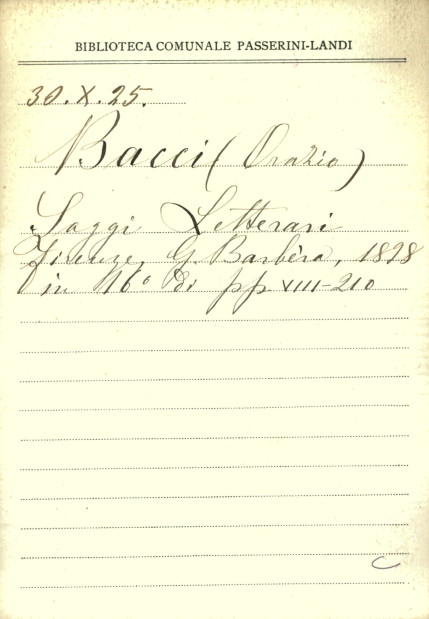 BIBLIOTECA COMUNALE PASSERINI-LANDI
30.X.25.
Bacci (Orazio)
Saggi Letterari
Firenze, G. Barbèra, 1898
in 16° di pp VIII-210
C